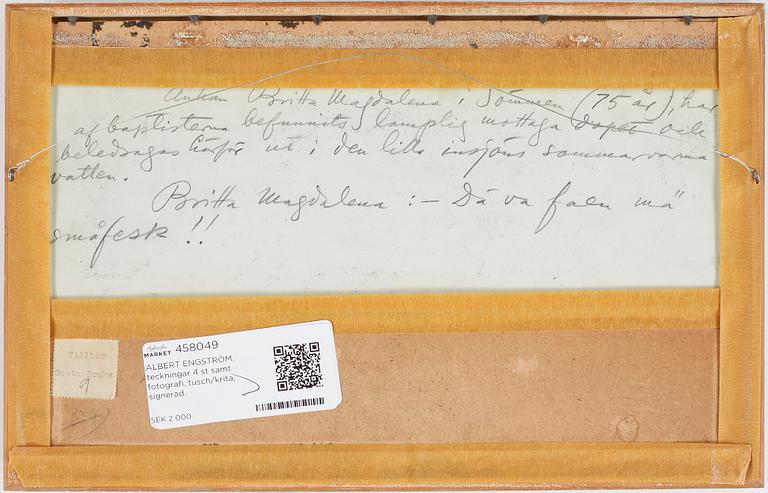 Änkan Britta Magdalena i Sömmen (75 år), har
af baptisterna befunnits lämplig mottaga dopet och
beledsagas härför ut i den lilla insjöns sommarvarma
vatten.
Britta Magdalena :- Dä va faen mä
småfesk !!
Tillhör
Gösta Drake
9
MARKET 458049
ALBERT ENGSTRÖM,
teckningar 4 st samt
fotografi, tusch/krita,
signerad.
SEK 2 000